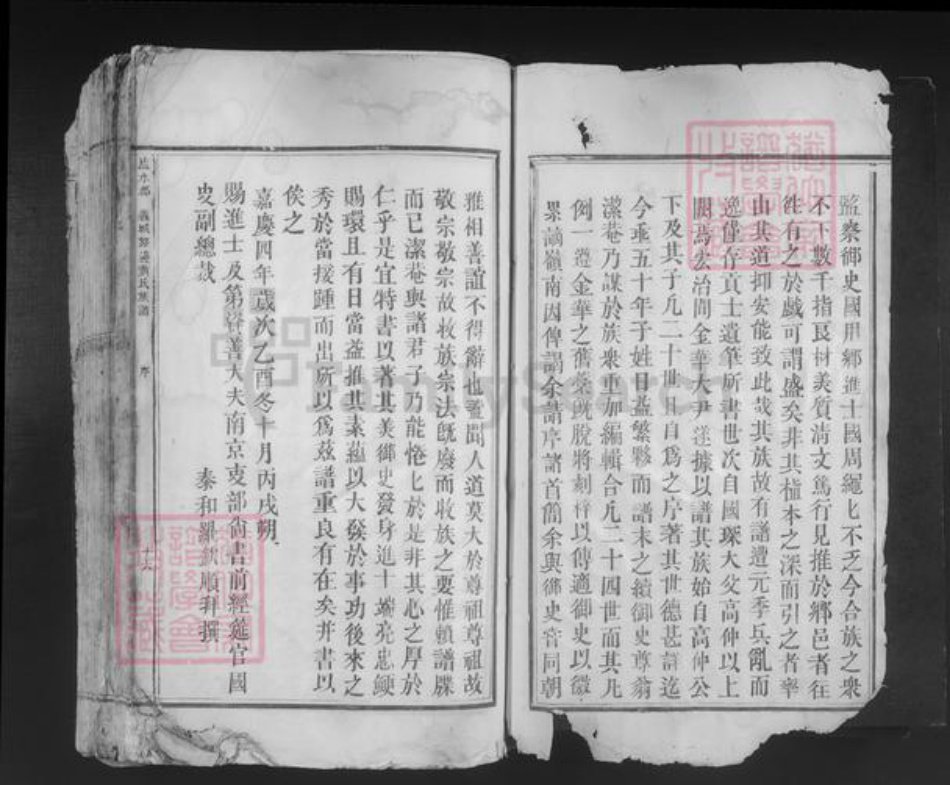 監察御史國用鄉進士國周繩匕不乏今合族之衆
不下數千指良材美質清文篤行見推於鄉邑者往
徃有之於戲可謂盛矣非其植本之深而引之者率
由其道抑安能致此哉其族故有譜遭元季兵亂而
逸僅存貢士遺筆所書世次自國琛大父高仲以上
闕焉宏治間金華大尹遂據以譜其族始自高仲公
下及其子凡二十世且自爲之序著其世德甚詳迄
今垂五十年于姓日益繁夥而譜未之續御史尊翁
潔菴乃謀於族衆重加編輯合凡二十四世而其凡
例一遵金華之舊槀既脫將刻梓以傳適御史以微
累謫嶺南因俾謁余請序諸首簡余與御史昔同朝
雅相善誼不得辭也蓋聞人道莫大於尊祖尊祖故
敬宗敬宗故收族宗法旣廢而收族之要惟賴譜牒
而已潔菴與諸君子乃能惓匕於是非其心之厚於
仁乎是宜特書以著其美御史發身進士端亮忠鯁
賜環且有日當益推其素蘊以大發於事功後來之
秀於當接踵而出所以爲兹譜重良有在矣并書以
俟之
嘉慶四年歲次乙酉冬十月丙戌朔
賜進士及第資善大夫南京吏部尚書前經筵官國
史副總裁
泰和羅欽順拜撰
氏族譜
序
十六
FamilySearch